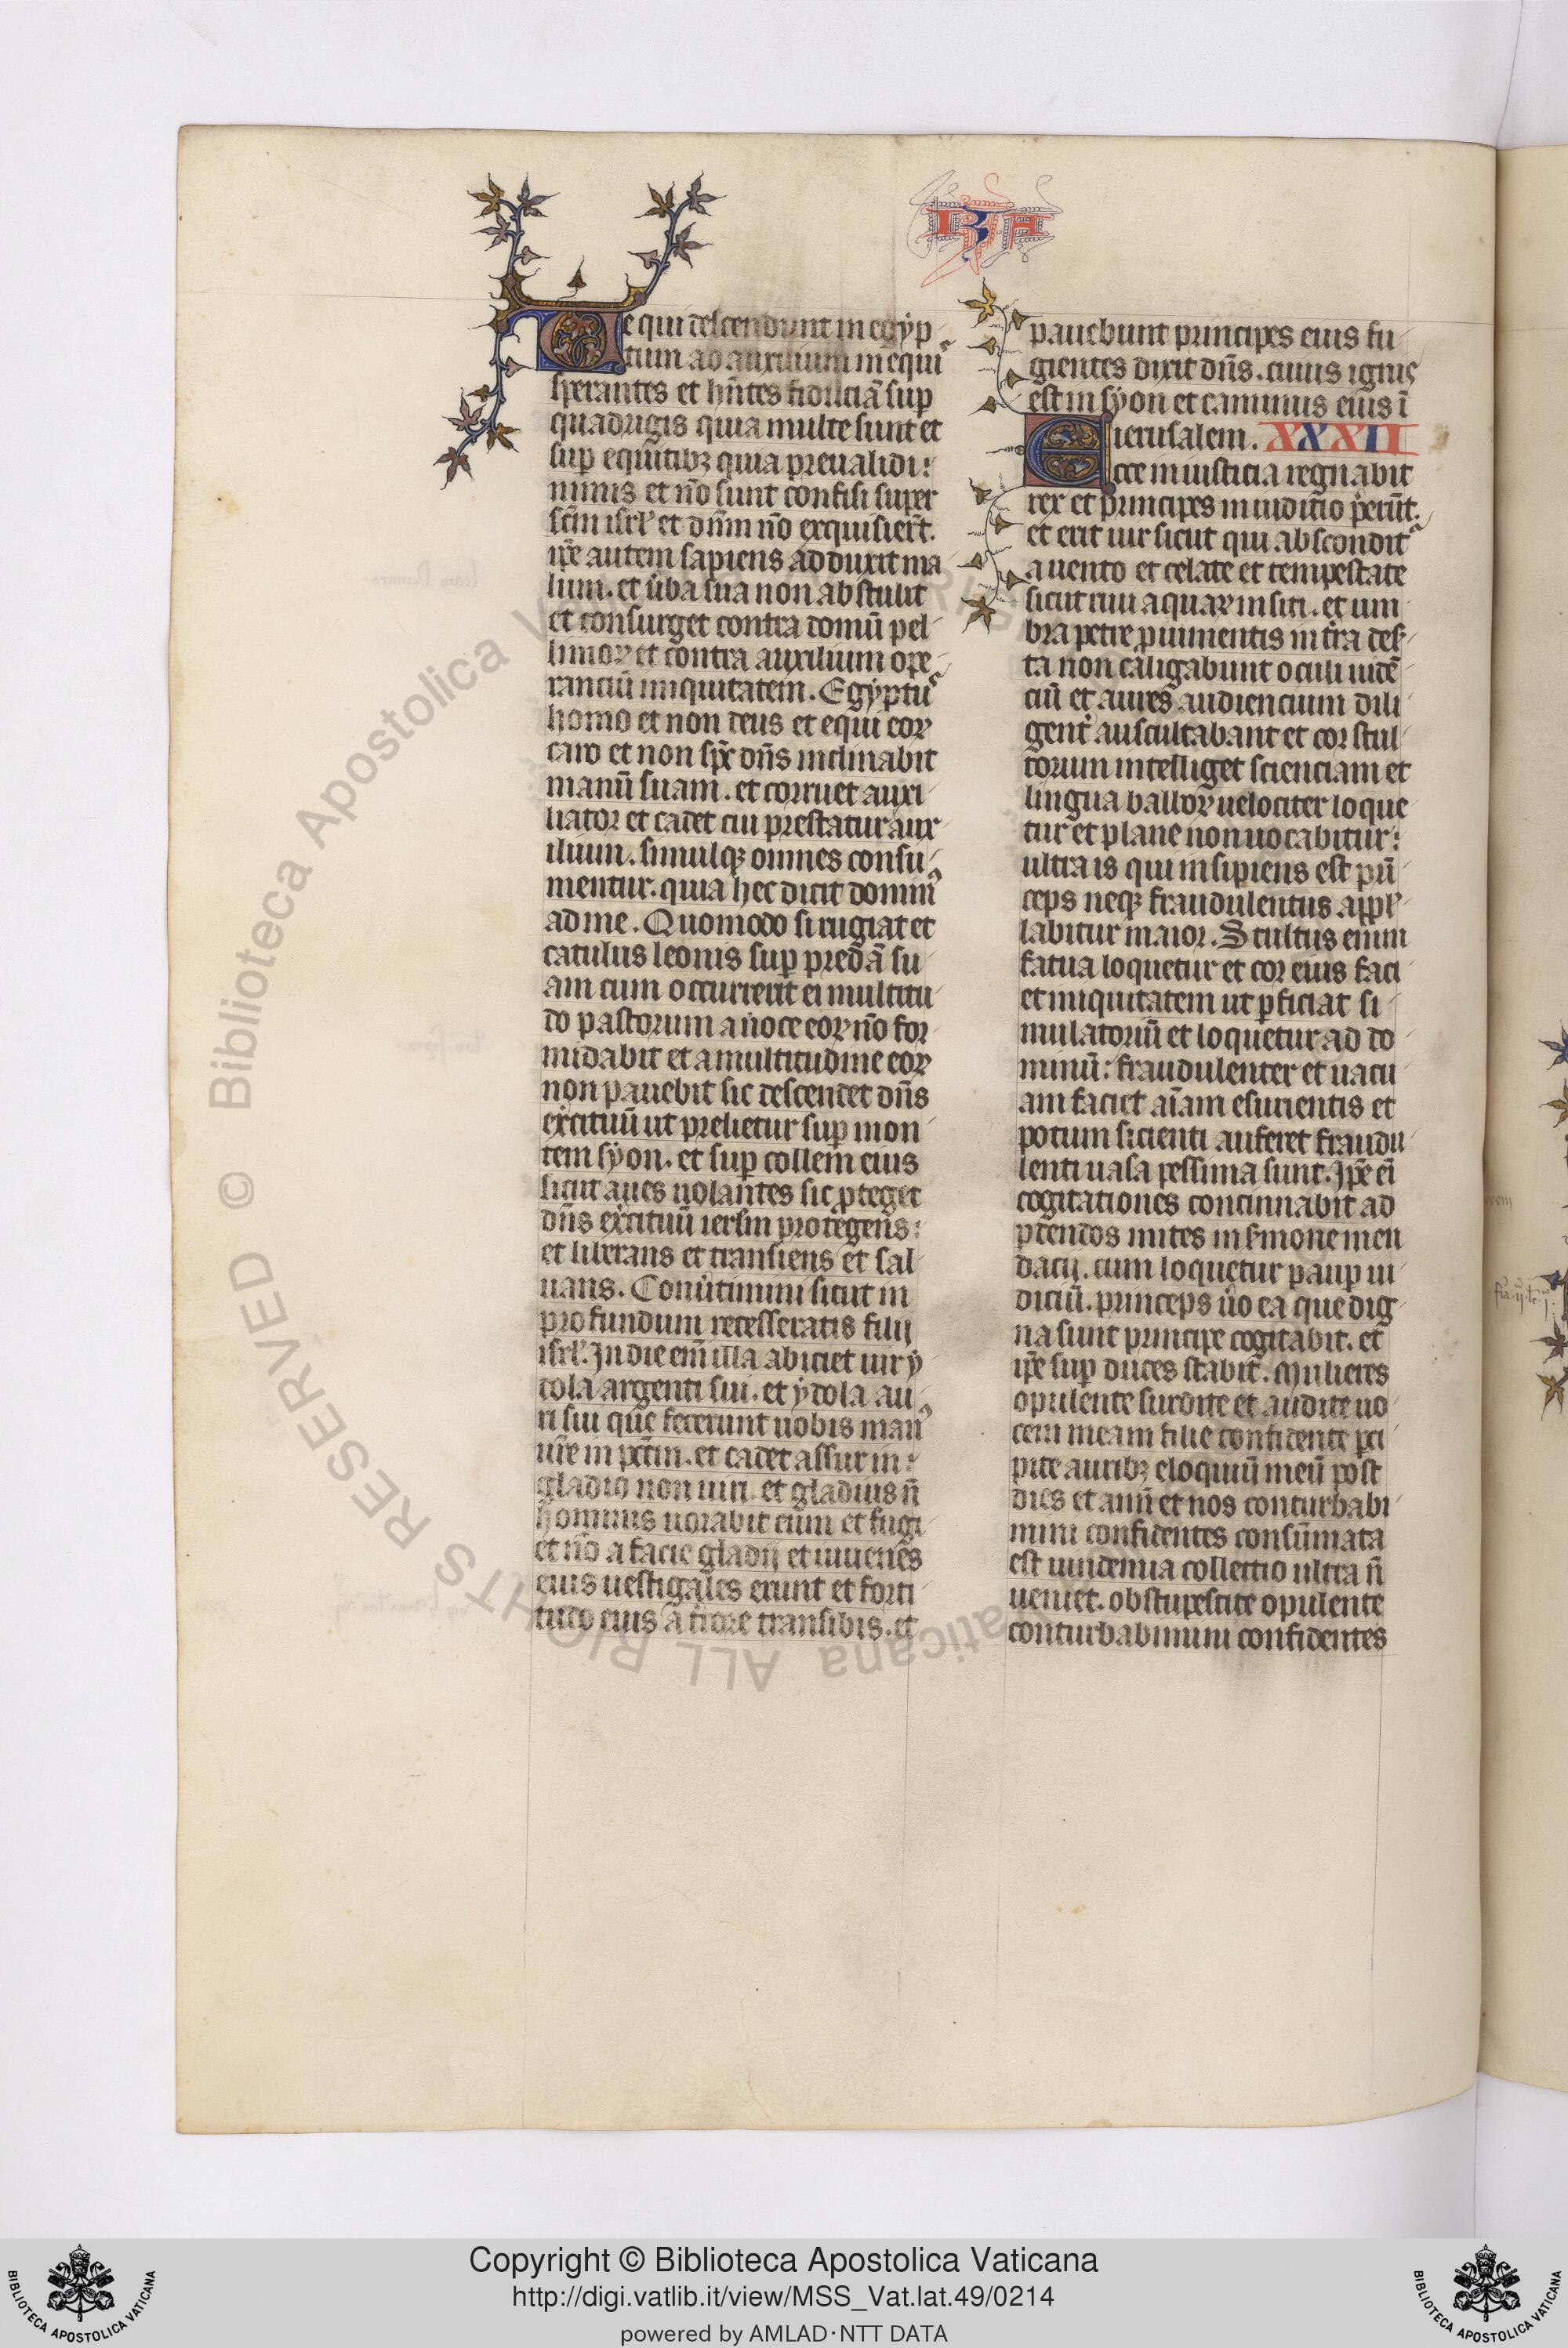 RIA
Ve qui descendunt in egyp
tum ad auxilium in equiˢ
sperantes et hñtes fiduciã suꝑ
quadrigis quia multe sunt et
suꝑ equitibꝫ quia preualidi:
nimis et nõ sunt confisi super
scm̃ isrł et dnm̃ nõ exquisier̃t.
ip̃e autem sapiens adduxit ma
lum. et ũba sua non abstulit
et consurget contra domũ pes
simoꝝ et contra auxilium ope
ranciũ iniquitatem. Egyptuˢ
homo et non deus et equi eoꝝ
caro et non sp̃c dñs inclinabit
manũ suam. et corruet auxi
liator et cadet cui prestatur aux
ilium. simulqꝫ omnes consu
mentur. quia hec dicit dominꝰ
ad me. Quomodo si rugiat et
catulus leonis suꝑ predã su
am cum occurrerit ei multitu
do pastorum a uoce eoꝝ nõ for
midabit et a multitudine eoꝝ
non pauebit sic descendet dñs
excituũ ut prelietur suꝑ mon
tem syon. et suꝑ collem eius
sicut aues uolantes sic ꝓteget
dñs excituũ ierlm̃ protegens:
et liberans et transiens et sal
uans. Conũtimini sicut in
profundum recesseratis filij
isrł. In die em̃ illa abiciet uir y
dola argenti sui. et ydola au
ri sui que fecerunt uobis manꝰ
ur̃e in pctm̃. et cadet assur in:
gladio non uiri. et gladius ñ
hominis uorabit eum et fugi
et nõ a facie gladij et iuuenes
eius uestigales erunt et forti
tudo eius a t̃rore transibis. et
pauebunt principes eius fu
gientes dixit dñs. cuius igniˢ
est in syon et caminus eius ĩ
ierusalem. XXXII
Ecce in iusticia regnabit
rex et principes in iudicio p̃erũt.
et erit uir sicut qui absconditʳ
a uento et celat e et tempestate
sicut riui aquaꝝ in siti. et um
bra petre ꝓminentis in t̃ra deß
ta non caligabunt oculi uidẽ
ciũ et aures audiencium dili
gent̃ auscultabant et cor stul
torum intelliget scienciam et
lingua balboꝝ uelociter loque
tur et plane non uocabitur:
ultra is qui insipiens est pñ
ceps neqꝫ fraudulentus appł
labitur maior. Stultus enim
fatua loquetur et cor eius faci
et iniquitatem ut ꝑficiat si
mulatoriũ et loquetur ad do
minũ: fraudulenter et uacu
am faciet aĩam esurientis et
potum sicienti auferet fraudu
lenti uasa pessima sunt. Ip̃e eĩ
cogitationes concinnabit ad
ꝑdendos mites in ßmone men
dacij. cum loquetur pauꝑ iu
diciũ. princeps ũo ea que dig
na sunt principe cogitabit. et
ip̃e suꝑ duces stabit. Mulieres
opulente surgite et audite uo
cem meam filie confidente ꝑci
pite auribꝫ eloquiũ meũ post
dies et annũ et nos conturbabi
mini confidentes consũmata
est uindemia collectio ultra ñ
ueniet. obstupescite opulente
conturbabimini confidentes
© Biblioteca Apostolica Vaticana ALL RIGHTS RESERVED
Copyright © Biblioteca Apostolica Vaticana
http://digi.vatlib.it/view/MSS_Vat.lat.49/0214
powered by AMLAD·NTT DATA
BIBLIOTECA APOSTOLICA VATICANA
BIBLIOTECA APOSTOLICA VATICANA